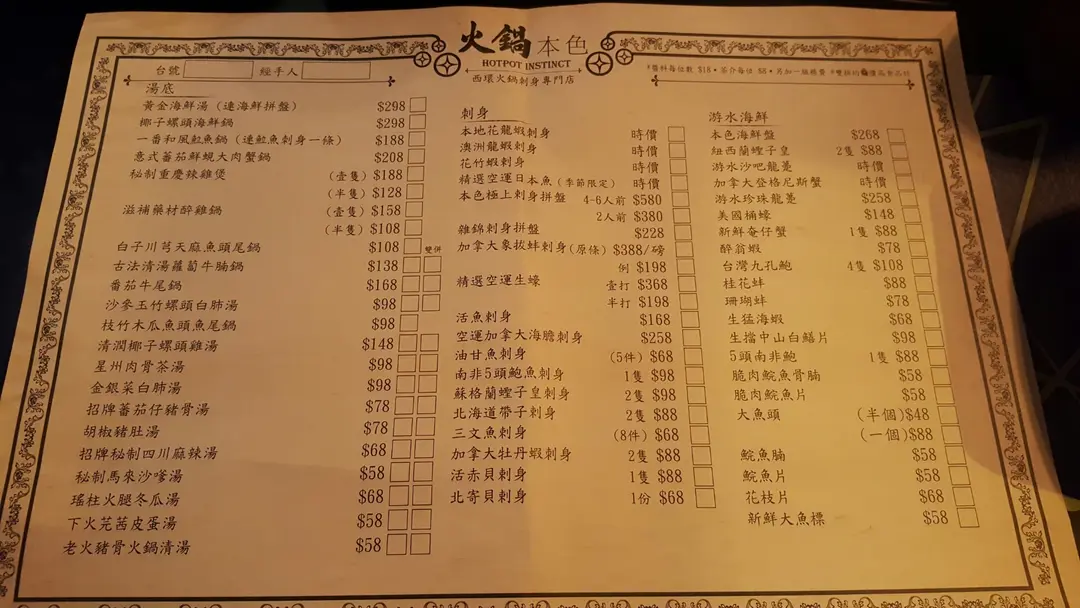 火鍋本色
HOTPOT INSTINCT
西環火鍋刺身專門店
台號 經手人
*醬料每位數 $18•茶介每位 $8•另加一服務費
湯底
黃金海鮮湯 (連海鮮拼盤) $298
椰子螺頭海鮮鍋 $298
一番和風魷魚鍋 (連魷魚刺身一條) $188
意式蕃茄鮮蜆大肉蟹鍋 $208
秘制重慶辣雞煲 (壹隻) $188
(半隻) $128
滋補藥材醉雞鍋 (壹隻) $158
(半隻) $108
雙併
白子川芎天麻魚頭尾鍋 $108
古法清湯蘿蔔牛腩鍋 $138
番茄牛尾鍋 $168
沙參玉竹螺頭白肺湯 $98
枝竹木瓜魚頭魚尾鍋 $98
清潤椰子螺頭雞湯 $148
星州肉骨茶湯 $98
金銀菜白肺湯 $98
招牌蕃茄仔豬骨湯 $78
胡椒豬肚湯 $78
招牌秘制四川麻辣湯 $68
秘制馬來沙嗲湯 $58
瑤柱火腿冬瓜湯 $68
下火芫茜皮蛋湯 $58
老火豬骨火鍋清湯 $58
刺身
本地花龍蝦刺身 時價
澳洲龍蝦刺身 時價
花竹蝦刺身 時價
精選空運日本魚 (季節限定) 時價
本色極上刺身拼盤 4-6人前 $580
2人前 $380
雜錦刺身拼盤 $228
加拿大象拔蚌刺身 (原條) $388/磅
例 $198
精選空運生蠔 壹打 $368
半打 $198
活魚刺身 $168
空運加拿大海膽刺身 $258
油甘魚刺身 (5件) $68
南非5頭鮑魚刺身 1隻 $98
蘇格蘭蟶子皇刺身 2隻 $98
北海道帶子刺身 2隻 $88
三文魚刺身 (8件) $68
加拿大牡丹蝦刺身 2隻 $88
活赤貝刺身 1隻 $88
北寄貝刺身 1份 $68
游水海鮮
本色海鮮盤 $268
紐西蘭蟶子皇 2隻 $88
游水沙吧龍躉 時價
加拿大登格尼斯蟹 時價
游水珍珠龍躉 $258
美國桶蠔 $148
新鮮奄仔蟹 1隻 $88
醉翁蝦 $78
台灣九孔鮑 4隻 $108
桂花蚌 $88
珊瑚蚌 $78
生猛海蝦 $68
生擋中山白鱔片 $98
5頭南非鮑 1隻 $88
脆肉鯇魚骨腩 $58
脆肉鯇魚片 $58
大魚頭 (半個) $48
(一個) $88
鯇魚腩 $58
鯇魚片 $58
花枝片 $68
新鮮大魚標 $58